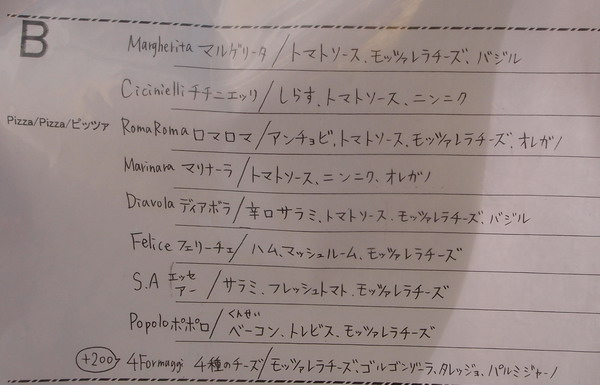 B
Margherita マルゲリータ/トマトソース、モッツァレラチーズ、バジル
Cicinielli チチニエッリ/しらす、トマトソース、ニンニク
Pizza/Pizza/ピッツァ
RomaRoma ロマロマ/アンチョビ、トマトソース、モッツァレラチーズ、オレガノ
Marinara マリナーラ/トマトソース、ニンニク、オレガノ
Diavola ディアボラ/辛口サラミ、トマトソース、モッツァレラチーズ、バジル
Felice フェリーチェ/ハム、マッシュルーム、モッツァレラチーズ
S.A エッセアー/サラミ、フレッシュトマト、モッツァレラチーズ
くんせい
Popolo ポポロ/ベーコン、トレビス、モッツァレラチーズ
+200 4Formaggi 4種のチーズ/モッツァレラチーズ、ゴルゴンゾーラ、タレッジョ、パルミジャーノ